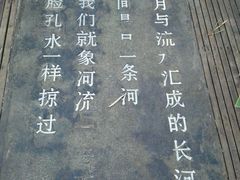 月与流汇成的长河
间一条河
我们就象河流
脸孔水一样掠过